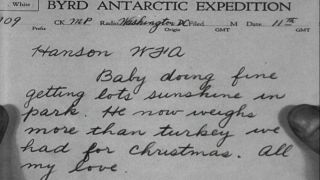 BYRD ANTARCTIC EXPEDITION
109 CK Radio Washington DC Filed M Date 11th
Prefix Origin GMT GMT
Hanson WFA
Baby doing fine
getting lots sunshine in
park. He now weighs
more than turkey we
had for Christmas. All
my love.